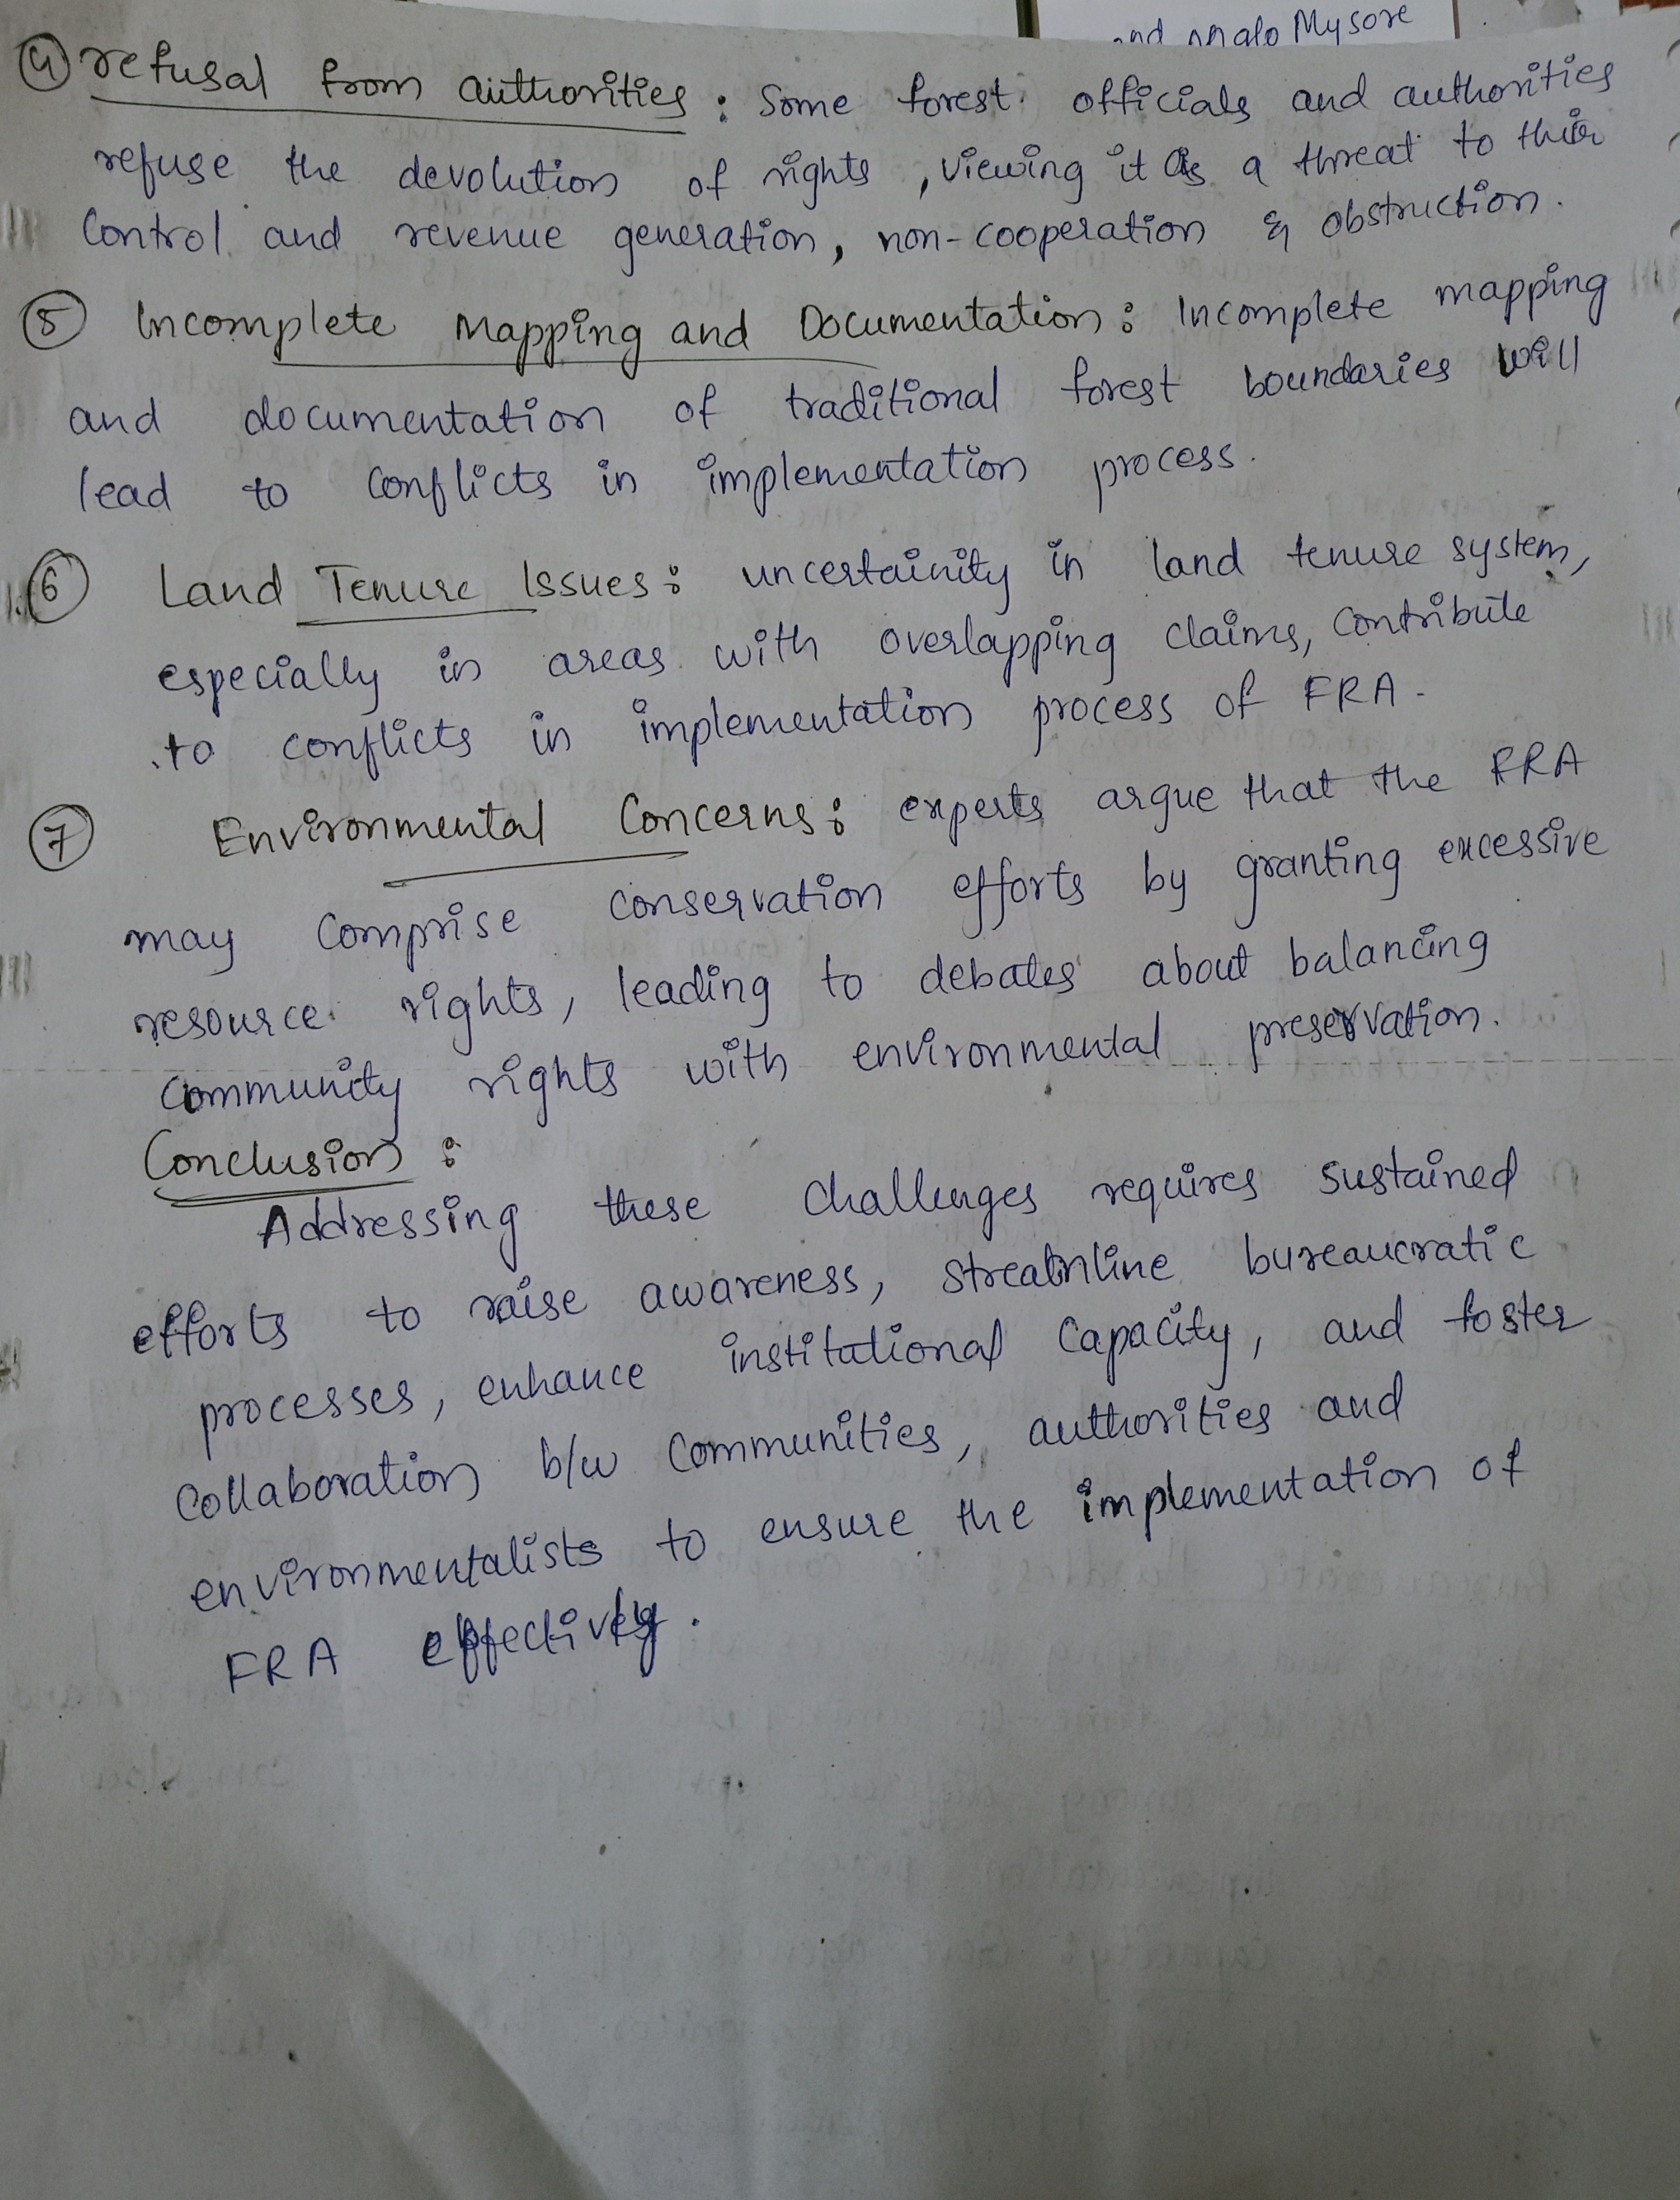 and Mysore
④ refusal from authorities : Some forest officials and authorities
refuse the devolution of rights , viewing it as a threat to thier
Control and revenue generation, non-cooperation & obstruction.
⑤ Incomplete Mapping and Documentation : Incomplete mapping
and documentation of traditional forest boundaries will
lead to conflicts in implementation process.
⑥ Land Tenure Issues : uncertainity in land tenure system,
especially in areas with overlapping claims, contribute
to conflicts in implementation process of FRA.
⑦ Environmental Concerns : experts argue that the FRA
may comprise conservation efforts by granting excessive
resource rights, leading to debates about balancing
community rights with environmental preservation.
Conclusion :
Addressing these challenges requires sustained
efforts to raise awareness, streamline bureaucratic
processes, enhance institutional capacity, and foster
Collaboration b/w Communities, authorities and
environmentalists to ensure the implementation of
FRA effectively.